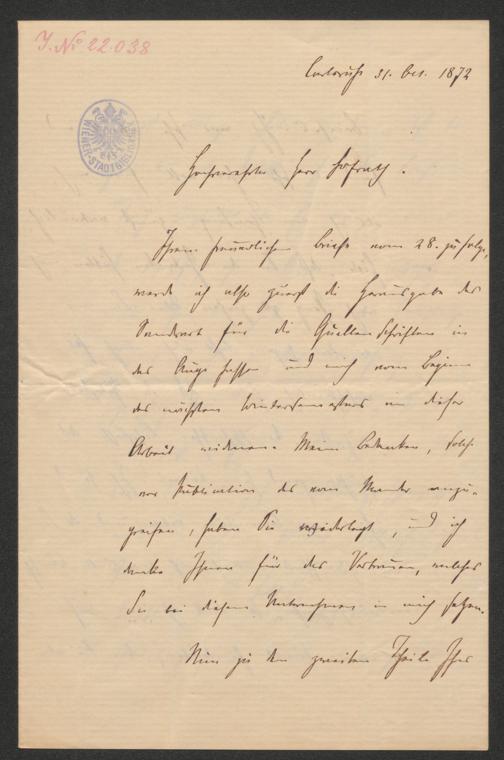 J. Nº 22.038
Carlsruhe 31. Oct. 1872
WIENER-STADTBIBLIOTHEK
Hochverehrter Herr Hofrath.
Ihrem freundlichen Briefe vom 28. zufolge,
werde ich also zuerst die Herausgabe des
Sandrart für die Quellenschriften in
das Auge fassen und mich vom Beginn
des nächsten Wintersemesters an dieser
Arbeit widmen. Mein Bedenken, solche
vor Publication des van Mander anzu-
greifen, haben Sie widerlegt, und ich
danke Ihnen für das Vertrauen, welches
Sie bei diesem Unternehmen in mich setzen.
Nun zu dem zweiten Theile Ihres